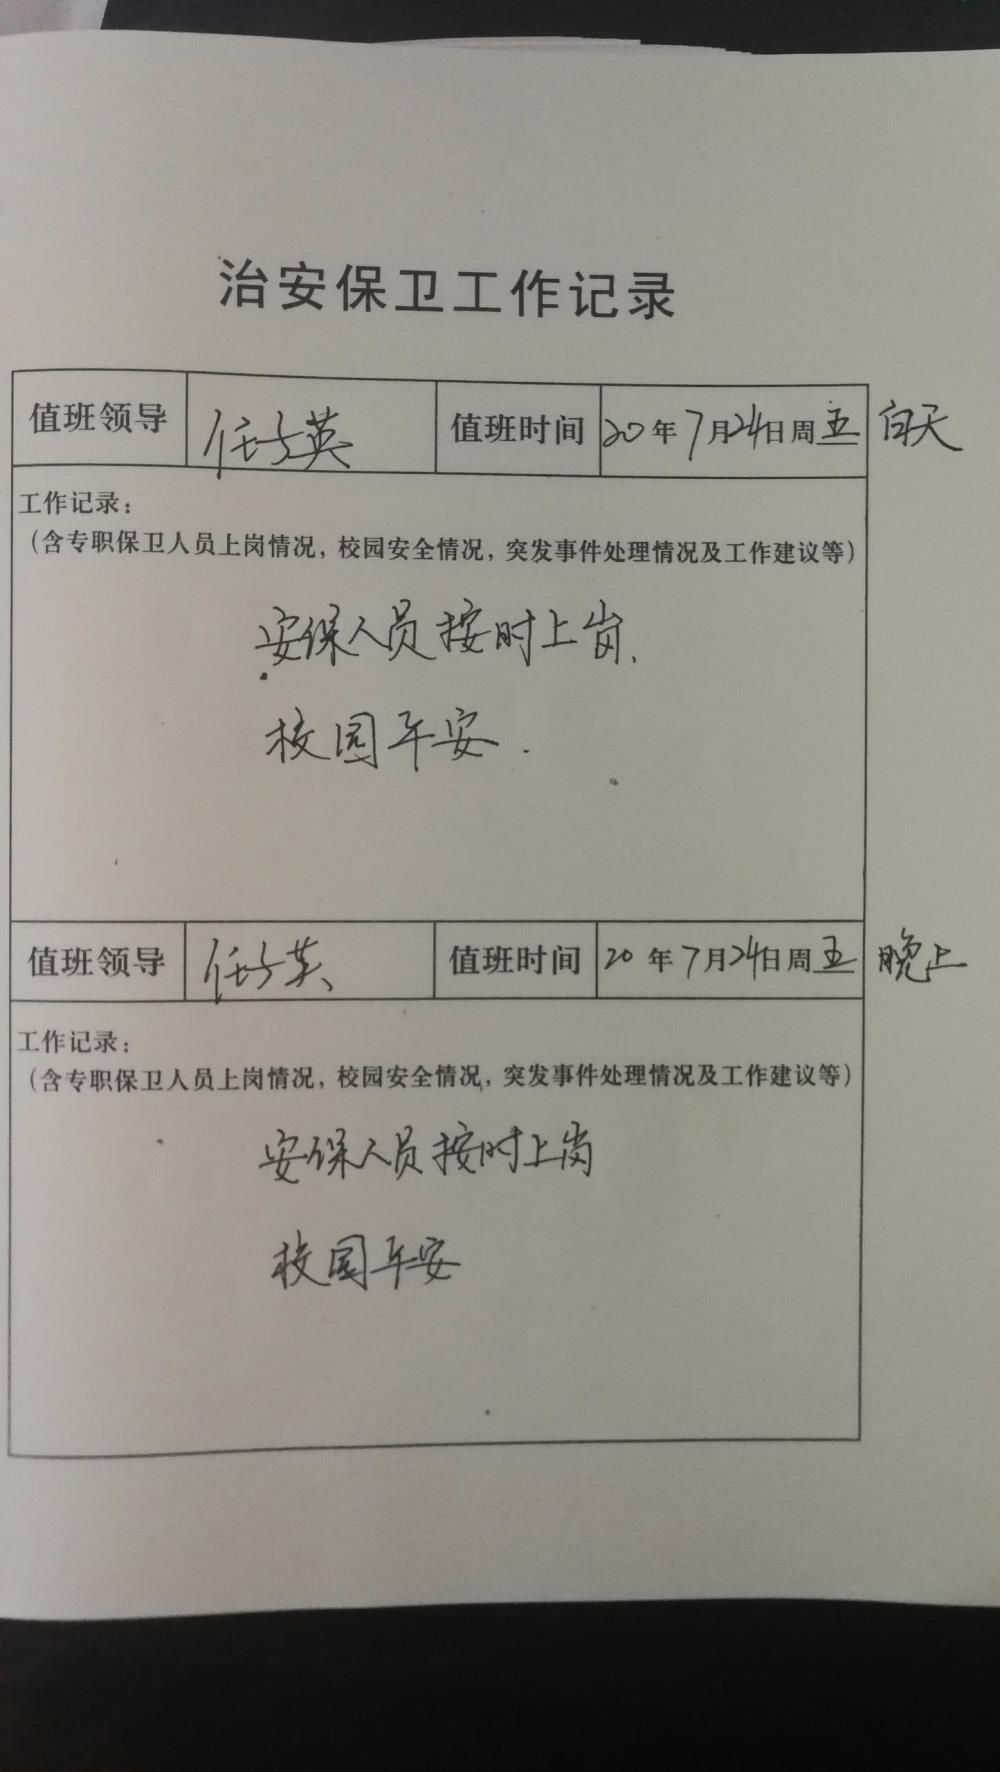 治安保卫工作记录
值班领导 任方英 值班时间 20年7月24日周五 白天
工作记录：
（含专职保卫人员上岗情况，校园安全情况，突发事件处理情况及工作建议等）
安保人员按时上岗、
校园平安．
值班领导 任方英 值班时间 20年7月24日周五 晚上
工作记录：
（含专职保卫人员上岗情况，校园安全情况，突发事件处理情况及工作建议等）
安保人员按时上岗
校园平安